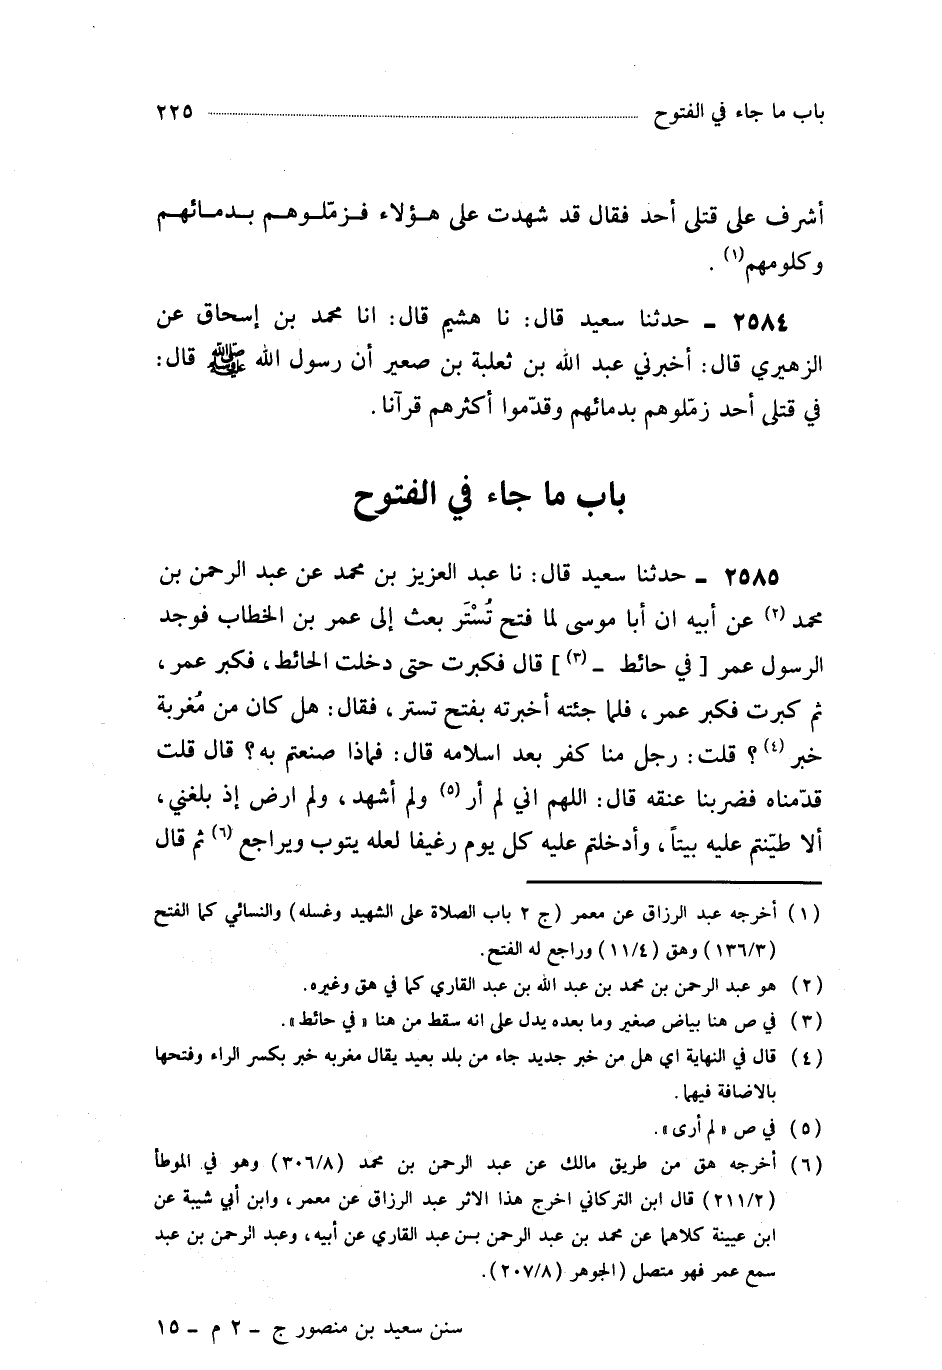 باب ما جاء في الفتوح ٢٢٥
أشرف على قتلى أحد فقال قد شهدت على هـؤلاء فـزمّلـوهـم بـدمـائهـم
وكلومهم(١) .
٢٥٨٤ ـ حدثنا سعيد قال: نا هشيم قال: انا محمد بن إسحاق عن
الزهيري قال: أخبرني عبد الله بن ثعلبة بن صعير أن رسول الله ﷺ قال:
في قتلى أحد زمّلوهم بدمائهم وقدّموا أكثرهم قرآنا.
باب ما جاء في الفتوح
٢٥٨٥ ـ حدثنا سعيد قال: نا عبد العزيز بن محمد عن عبد الرحمن بن
محمد (٢) عن أبيه ان أبا موسى لما فتح تُسْتَر بعث إلى عمر بن الخطاب فوجد
الرسول عمر [ في حائط ـ(٣) ] قال فكبرت حتى دخلت الحائط، فكبر عمر،
ثم كبرت فكبر عمر، فلما جئته أخبرته بفتح تستر، فقال: هل كان من مُغربة
خبر (٤)؟ قلت: رجل منا كفر بعد اسلامه قال: فماذا صنعتم به؟ قال قلت
قدّمناه فضربنا عنقه قال: اللهم اني لم أر (٥) ولم أشهد، ولم ارض إذ بلغني،
ألا طيّنتم عليه بيتاً، وأدخلتم عليه كل يوم رغيفا لعله يتوب ويراجع (٦) ثم قال
(١) أخرجه عبد الرزاق عن معمر (ج ٢ باب الصلاة على الشهيد وغسله) والنسائي كما الفتح
(١٣٦/٣) وهق (١١/٤) وراجع له الفتح.
(٢) هو عبد الرحمن بن محمد بن عبد الله بن عبد القاري كما في هق وغيره.
(٣) في ص هنا بياض صغير وما بعده يدل على انه سقط من هنا «في حائط».
(٤) قال في النهاية اي هل من خبر جديد جاء من بلد بعيد يقال مغربه خبر بكسر الراء وفتحها
بالاضافة فيهما.
(٥) في ص «لم أرى».
(٦) أخرجه هق من طريق مالك عن عبد الرحمن بن محمد (٣٠٦/٨) وهو في الموطأ
(٢١١/٢) قال ابن التركاني اخرج هذا الاثر عبد الرزاق عن معمر، وابن أبي شيبة عن
ابن عيينة كلاهما عن محمد بن عبد الرحمن بـن عبد القاري عن أبيه، وعبد الرحمن بن عبد
سمع عمر فهو متصل (الجوهر (٢٠٧/٨).
سنن سعيد بن منصور ج ـ ٢ م ـ ١٥